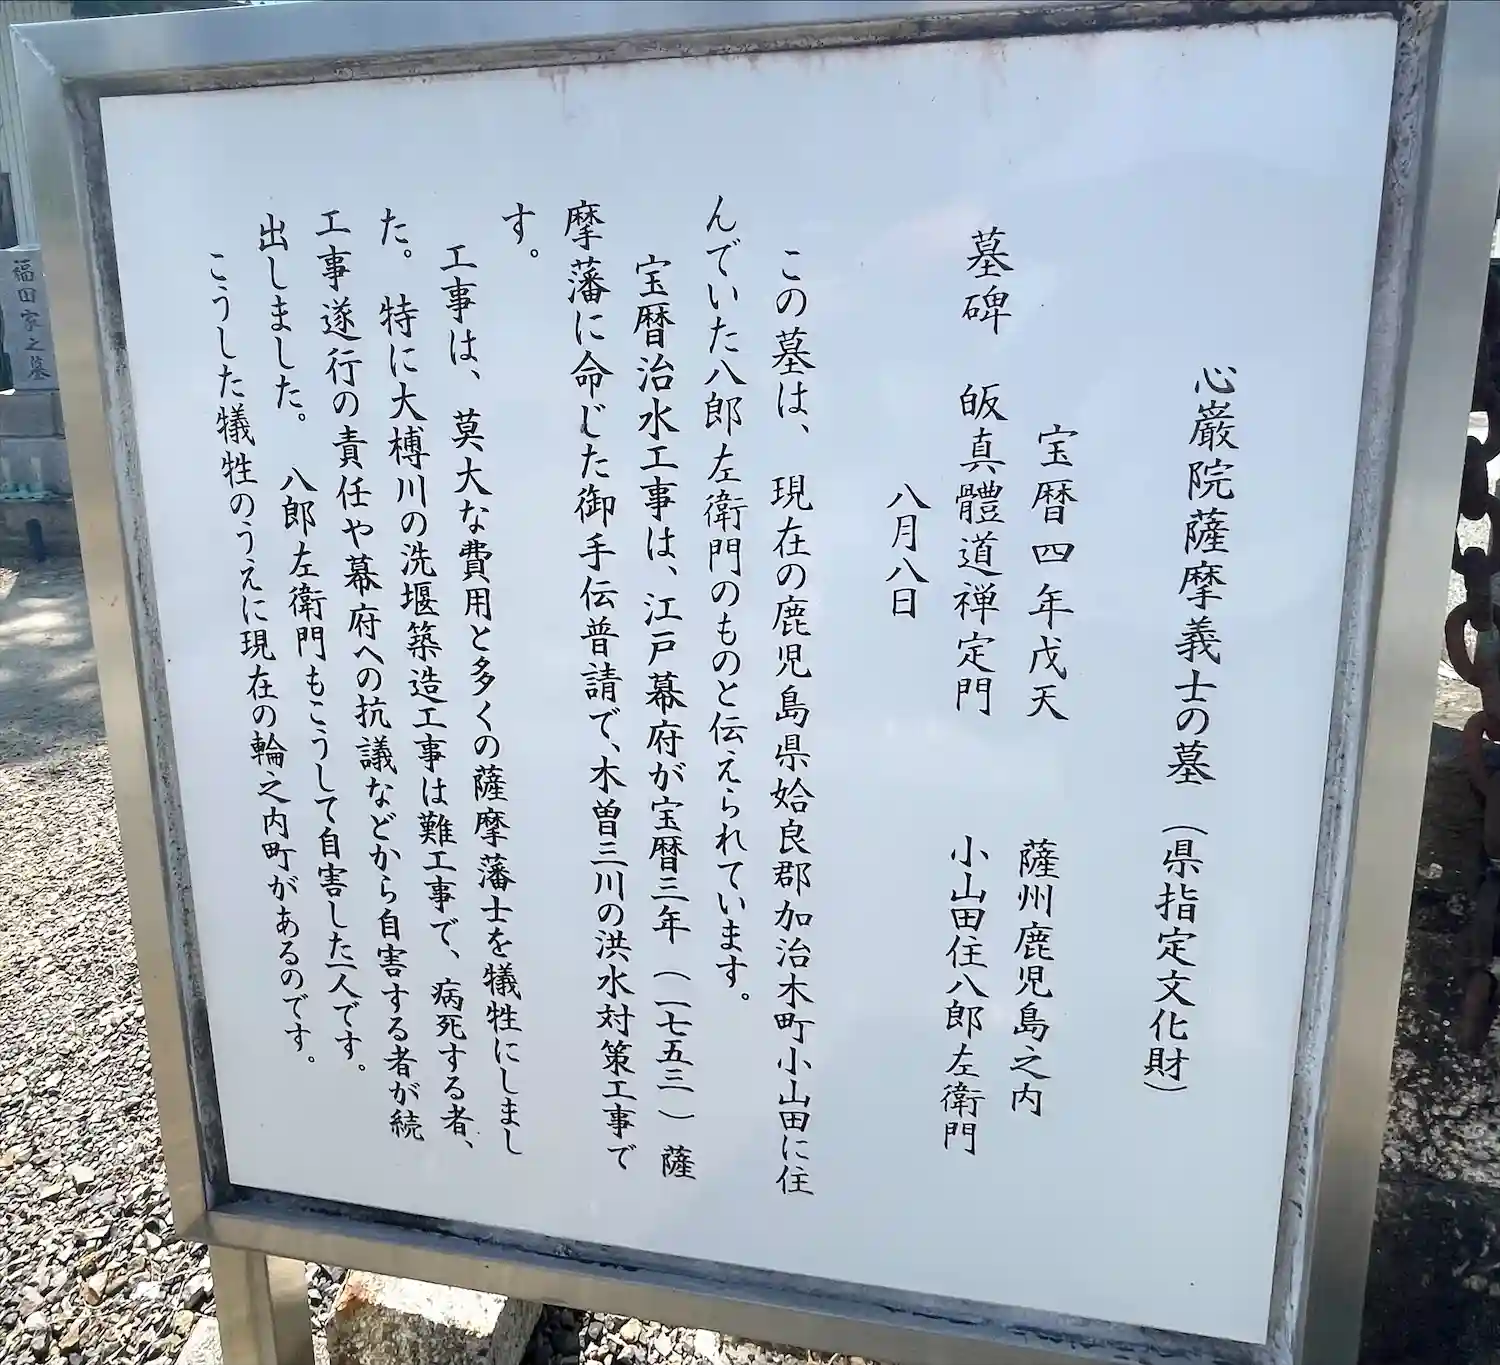 心巌院薩摩義士の墓 (県指定文化財)
宝暦四年戊天 薩州鹿児島之内
墓碑 皈真體道禅定門 小山田住八郎左衛門
八月八日
この墓は、現在の鹿児島県姶良郡加治木町小山田に住
んでいた八郎左衛門のものと伝えられています。
宝暦治水工事は、江戸幕府が宝暦三年(一七五三)薩
摩藩に命じた御手伝普請で、木曽三川の洪水対策工事で
す。
工事は、莫大な費用と多くの薩摩藩士を犠牲にしまし
た。特に大榑川の洗堰築造工事は難工事で、病死する者、
工事遂行の責任や幕府への抗議などから自害する者が続
出しました。八郎左衛門もこうして自害した一人です。
こうした犠牲のうえに現在の輪之内町があるのです。
福田家之墓